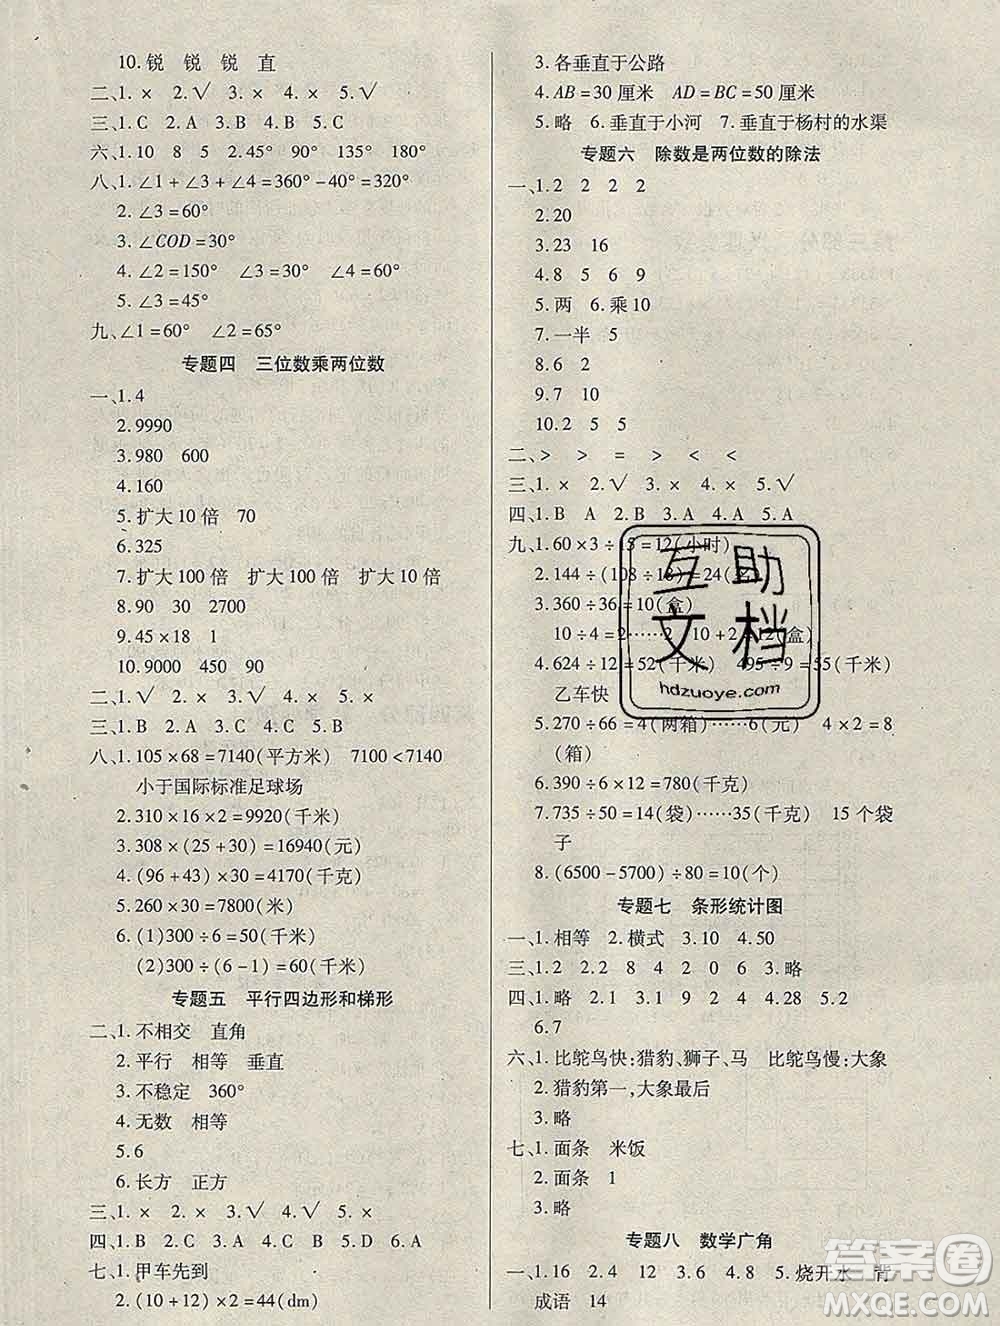 10. 锐 锐 锐 直
二、1. × 2. √ 3. × 4. × 5. √
三、1. C 2. A 3. B 4. C 5. C
六、1. 10 8 5 2. 45° 90° 135° 180°
八、1. ∠1+∠3+∠4=360°-40°=320°
2. ∠3=60°
3. ∠COD=30°
4. ∠2=150° ∠3=30° ∠4=60°
5. ∠3=45°
九、∠1=60° ∠2=65°
专题四 三位数乘两位数
一、1. 4
2. 9990
3. 980 600
4. 160
5. 扩大10倍 70
6. 325
7. 扩大100倍 扩大100倍 扩大100倍
8. 90 30 2700
9. 45×18 1
10. 9000 450 90
二、1. √ 2. × 3. × 4. √ 5. ×
三、1. B 2. B 3. C 4. A 5. A
八、1. 105×68=7140(平方米) 7100<7140
小于国际标准足球场
2. 310×16×2=9920(千米)
3. 308×(25+30)=16940(元)
4. (96+43)×30=4170(千克)
5. 260×30=7800(千米)
6. (1)300÷6=50(千米)
(2)300÷(6-1)=60(千米)
专题五 平行四边形和梯形
二、1. 不相交 直角
2. 平行 相等 垂直
3. 不稳定 360°
4. 无数 相等
5. 6
6. 长方 正方
三、1. × 2. × 3. √ 4. √ 5. ×
四、1. B 2. C 3. A 4. C 5. B 6. A
七、1. 甲车先到
2. (10+12)×2=44(dm)
3. 各垂直于公路
4. AB=30厘米 AD=BC=50厘米
5. 略 6. 垂直于小河 7. 垂直于杨村的水渠
专题六 除数是两位数的除法
一、1. 2 2 2 2
2. 20
3. 23 16
4. 8 5 6 9
5. 两 6. 乘10
7. 一半 5
8. 6 2
9. 7 10
10. 2 5 5
二、> > = > < <
三、1. × 2. √ 3. × 4. × 5. √
四、1. B A 2. B 3. A 4. A 5. A
九、1. 60×3÷15=12(小时)
2. 144÷(108÷18)=24()
3. 360÷36=10(盒)
10÷4=2……2 10+2=12(盒)
4. 624÷12=52(千米) 495÷9=55(千米)
乙车快
5. 270÷66=4(两箱)……6(元) 4×2=8
(箱)
6. 390÷6×12=780(千克)
7. 735÷50=14(袋)……35(千克) 15个袋
子
8. (6500-5700)÷80=10(个)
专题七 条形统计图
一、1. 相等 2. 横式 3. 10 4. 50
三、1. 2 2. 8 9 4 7 6 3. 略
四、1. 略 2. 1 3. 1 9 2 4 4. 28 5. 2
6. 7
六、1. 比鸵鸟快:猎豹、狮子、马 比鸵鸟慢:大象
2. 猎豹第一,大象最后
3. 略
七、1. 面条 米饭
2. 面条 1
3. 略
专题八 数学广角
一、1. 16 2. 4 12 3. 6 4. 8 5. 烧开水 背
成语 14
互助
文档
hdzuoye.com
答案圈
MXQE.COM